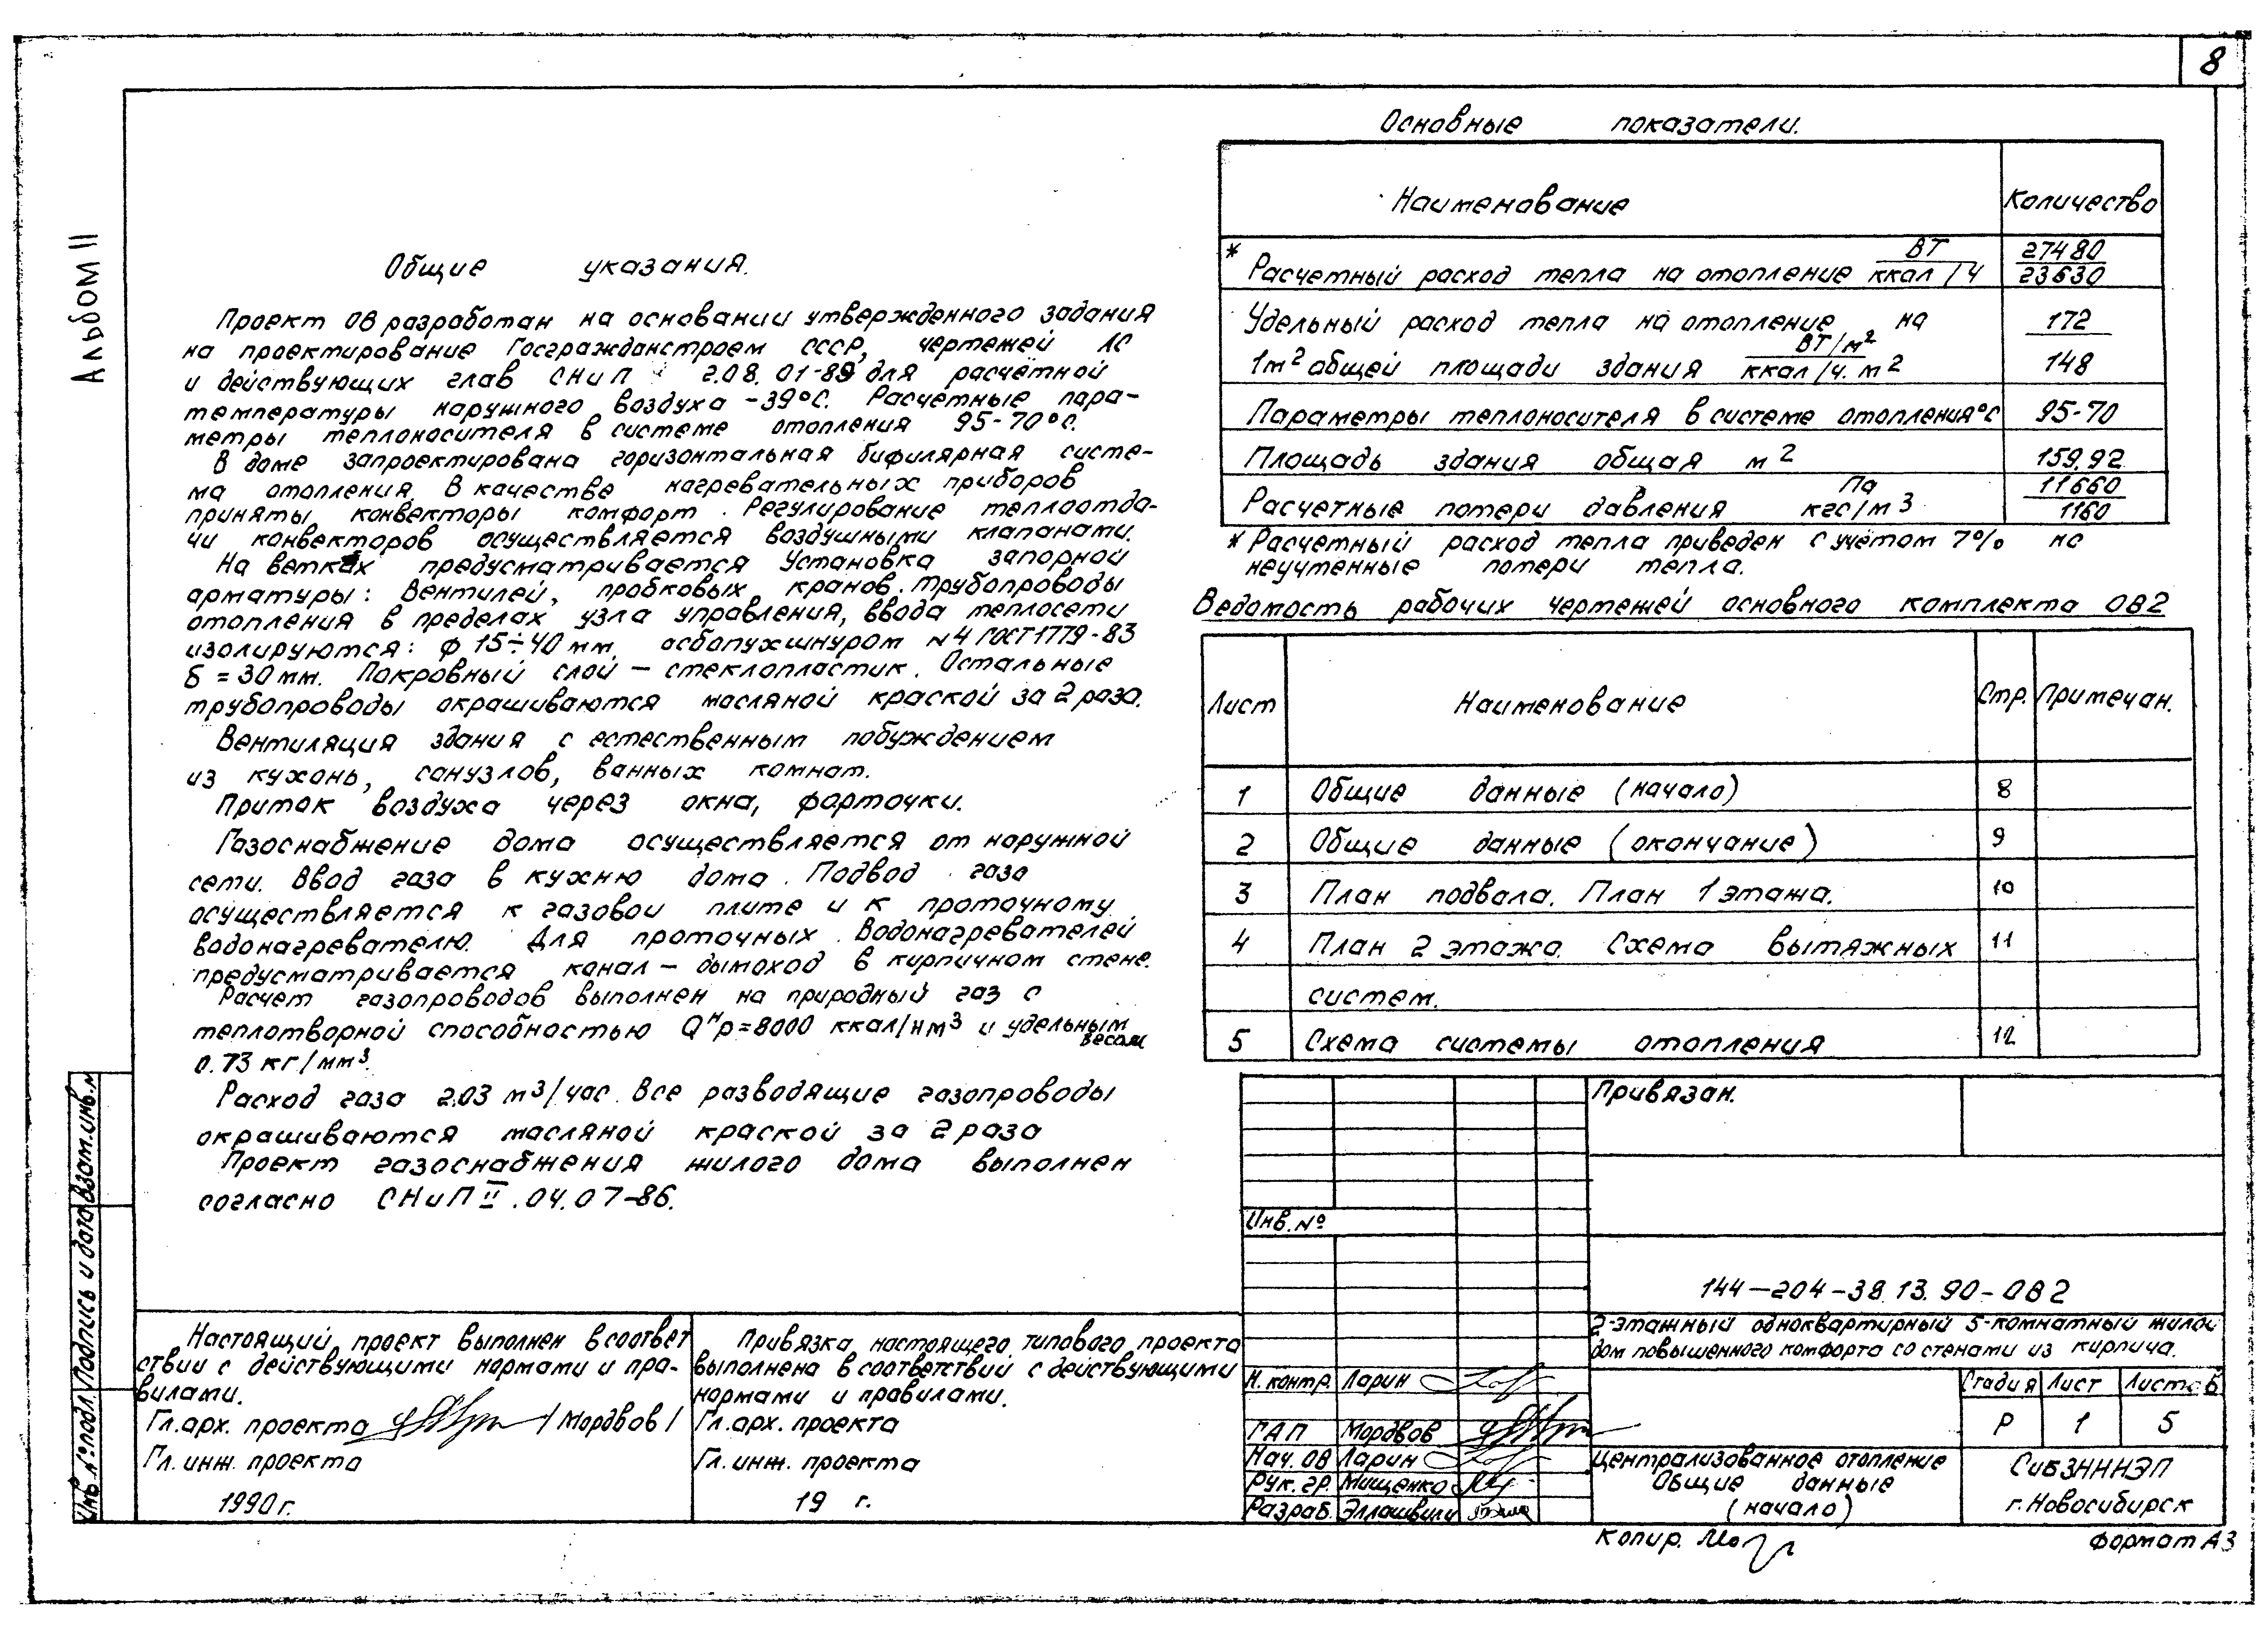 8
Альбом II
Общие указания.
Проект ОВ разработан на основании утвержденного задания
на проектирование Госгражданстроем СССР, чертежей АС
и действующих глав СНиП 2.08.01-89 для расчётной
температуры наружного воздуха -39°С. Расчетные пара-
метры теплоносителя в системе отопления 95-70°С.
В доме запроектирована горизонтальная бифилярная систе-
ма отопления. В качестве нагревательных приборов
приняты конвекторы комфорт. Регулирование теплоотда-
чи конвекторов осуществляется воздушными клапанами.
На ветках предусматривается установка запорной
арматуры: Вентилей, пробковых кранов. Трубопроводы
отопления в пределах узла управления, ввода теплосети
изолируются: ф 15÷40 мм асбопухшнуром N4 ГОСТ 1779-83
δ = 30 мм. Покровный слой — стеклопластик. Остальные
трубопроводы окрашиваются масляной краской за 2 раза.
Вентиляция здания с естественным побуждением
из кухонь, санузлов, ванных комнат.
Приток воздуха через окна, форточки.
Газоснабжение дома осуществляется от наружной
сети. Ввод газа в кухню дома. Подвод газа
осуществляется к газовой плите и к проточному
водонагревателю. Для проточных водонагревателей
предусматривается канал — дымоход в кирпичном стене.
Расчет газопроводов выполнен на природный газ с
теплотворной способностью Qнр=8000 ккал/нм³ и удельным
весом
0.73 кг/мм³.
Расход газа 2.03 м³/час. Все разводящие газопроводы
окрашиваются масляной краской за 2 раза
Проект газоснабжения жилого дома выполнен
согласно СНиП II.04.07-86.
Основные показатели.
Наименование Количество
* Расчетный расход тепла на отопление ВТ / ккал/ч 27480 / 23630
Удельный расход тепла на отопление на 172
1м² общей площади здания ВТ/м² / ккал/ч.м² 148
Параметры теплоносителя в системе отопления°С 95-70
Площадь здания общая м² 159.92
Расчетные потери давления Па / кгс/м3 11660 / 1160
* Расчетный расход тепла приведен с учётом 7% на
неучтенные потери тепла.
Ведомость рабочих чертежей основного комплекта ОВ2
Лист Наименование Стр. Примечан.
1 Общие данные (начало) 8
2 Общие данные (окончание) 9
3 План подвала. План 1 этажа. 10
4 План 2 этажа. Схема вытяжных 11
систем.
5 Схема системы отопления 12
Привязан.
Инв. №
144-204-38.13.90-ОВ2
2-этажный одноквартирный 5-комнатный жилой
дом повышенного комфорта со стенами из кирпича.
Н.контр. Ларин
ГАП Мордвов
Нач.ОВ Ларин
Рук.гр. Мищенко
Разраб. Эллашвили
Стадия Лист Листов
Р 1 5
Централизованное отопление
Общие данные
(начало)
СибЗНИИЭП
г.Новосибирск
Копир.
Формат А3
Настоящий проект выполнен в соответ
ствии с действующими нормами и пра-
вилами.
Гл.арх. проекта /Мордвов/
Гл.инж. проекта
1990г.
Привязка настоящего типового проекта
выполнена в соответствий с действующими
нормами и правилами.
Гл.арх. проекта
Гл.инж. проекта
19 г.
Инв.№подл. Подпись и дата Взам.инв.№